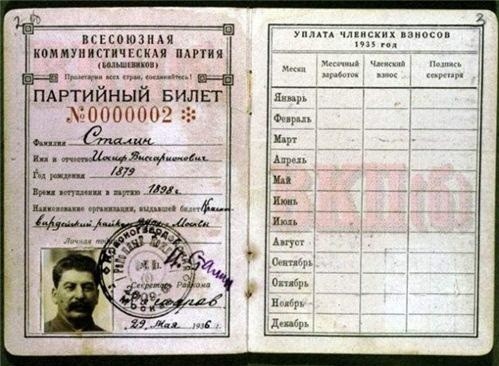 2
3
ВСЕСОЮЗНАЯ
КОММУНИСТИЧЕСКАЯ ПАРТИЯ
(БОЛЬШЕВИКОВ)
Пролетарии всех стран, соединяйтесь!
ПАРТИЙНЫЙ БИЛЕТ
№0000002
Фамилия Сталин
Имя и отчество Иосиф Виссарионович
Год рождения 1879
Время вступления в партию 1898 г.
Наименование организации, выдавшей билет Красно-
гвардейский райком Москвы
Личная
И. Сталин
Секретарь Райкома
29 Мая 1936 г.
УПЛАТА ЧЛЕНСКИХ ВЗНОСОВ
1935 год
Месяц Месячный заработок Членский взнос Подпись секретаря
Январь
Февраль
Март
Апрель
Май
Июнь
Июль
Август
Сентябрь
Октябрь
Ноябрь
Декабрь
ВКП(б)